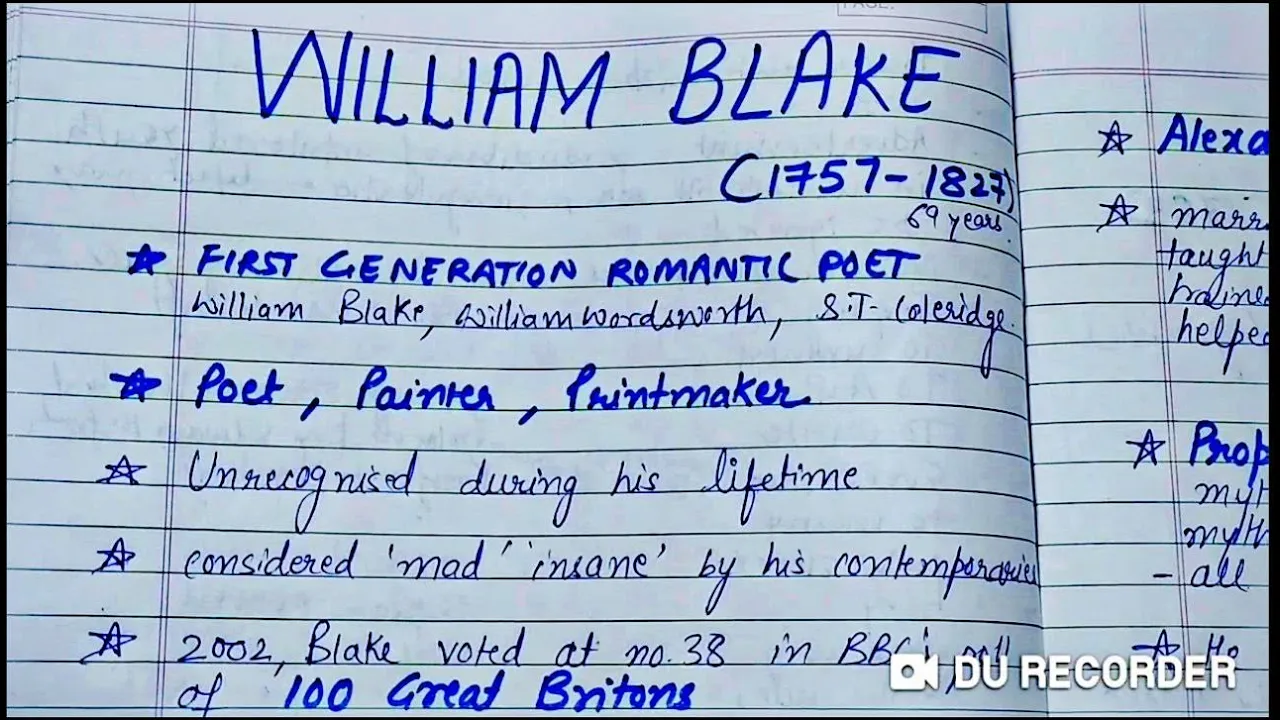 WILLIAM BLAKE
(1757-1827)
69 years.
FIRST GENERATION ROMANTIC POET
William Blake, William Wordsworth, S.T. Coleridge.
Poet, Painter, Printmaker
Unrecognised during his lifetime
considered 'mad' 'insane' by his contemporaries
2002, Blake voted at no.38 in BBC's
of 100 Great Britons
Alexa
marr
taught
traine
helped
Prop
myt
myth
- all
He
DU RECORDER